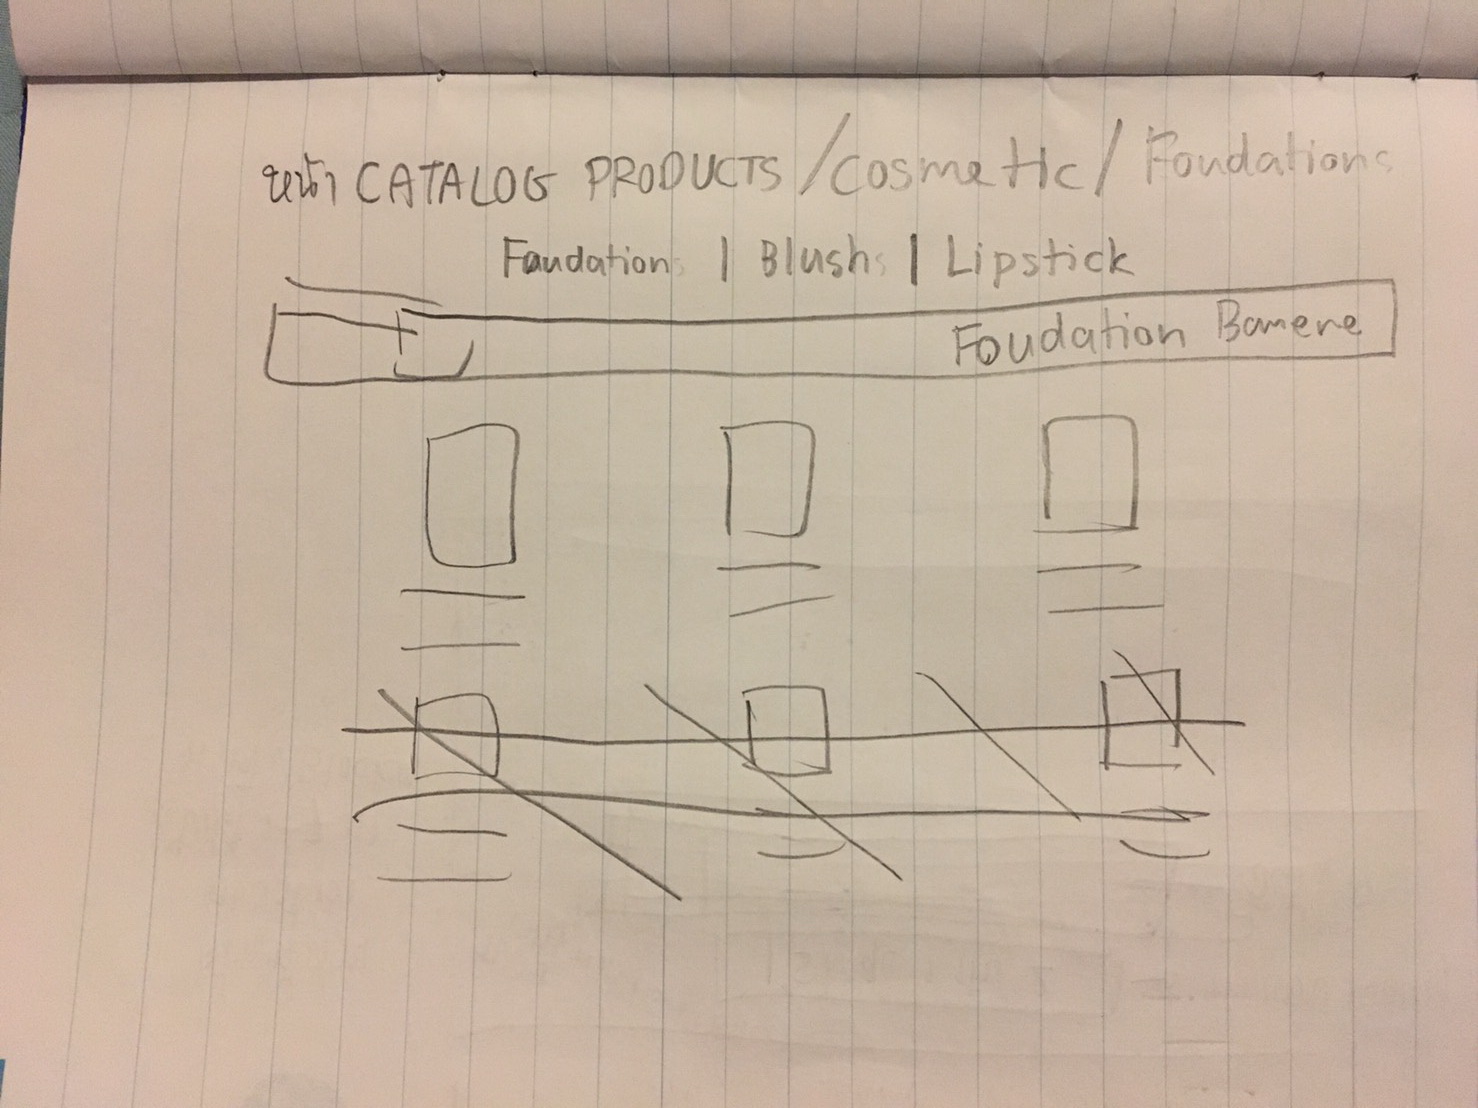 หน้า CATALOG PRODUCTS / cosmetic / Foudations
Faudations | Blushs | Lipstick
Foudation Banere